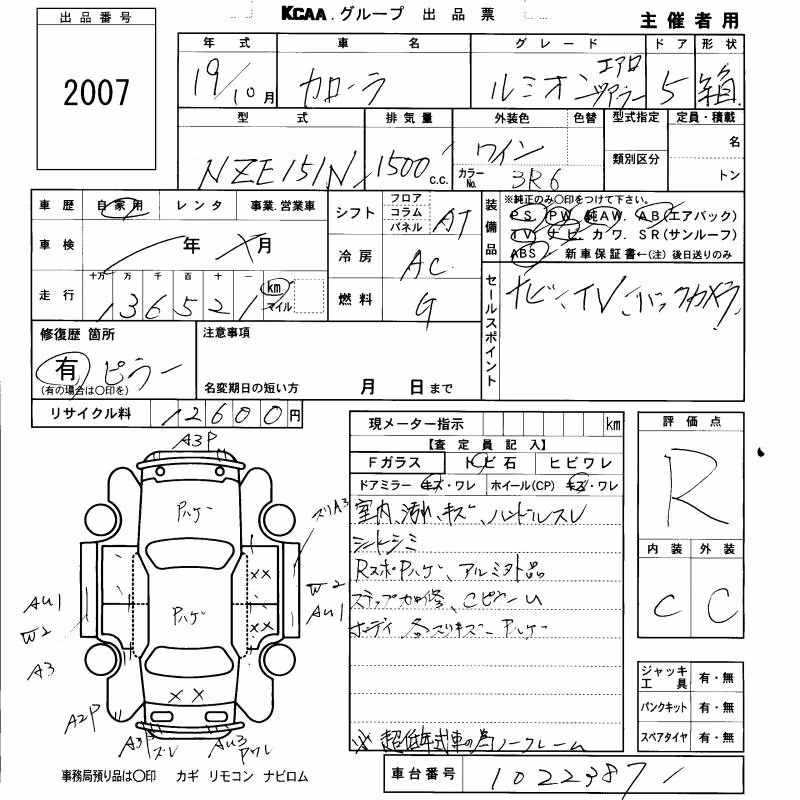 出品番号
2007
KCAA.グループ 出品票
主催者用
年式 車名 グレード ドア 形状
19/10月 カローラ ルミオン エアロツアラー 5 箱
型式 排気量 外装色 色替 型式指定 定員・積載
NZE151N 1500 c.c. ワイン カラーNo. 3R6 類別区分 名
トン
車歴 自家用 レンタ 事業.営業車
車検 年 月
走行 十万 万 千 百 十 一
136521 km マイル
シフト フロア コラム パネル AT
冷房 AC
燃料 G
装備品 ※純正のみ〇印をつけて下さい。
PS PW 純AW. AB(エアバック)
TV ナビ. カワ. SR(サンルーフ)
ABS 新車保証書←(注)後日送りのみ
セールスポイント
ナビ、TV、バックカメラ
修復歴 箇所
有 ピラー
(有の場合は〇印を)
注意事項
名変期日の短い方 月 日まで
リサイクル料 12600円
現メーター指示 km
【査定員記入】
Fガラス トビ石 ヒビワレ
ドアミラー キズ・ワレ ホイール(CP) キズ・ワレ
室内、汚れ、キズ、ハンドルスレ
シートシミ
RスポPハゲ、アルミ外品
ステップ加修、Cピラーu
ボディ 各スリキズ、Pハゲ
※ 超低年式車の為ノークレーム
評価点
R
内装 外装
C C
ジャッキ工具 有・無
パンクキット 有・無
スペアタイヤ 有・無
A3P
Pハゲ
スリA3
××
W2
AU1
Pハゲ
××
AU1
W2
A3
××
A2P
A3P ズレ
AU3 Pワレ
事務局預り品は〇印 カギ リモコン ナビロム
車台番号 1022387